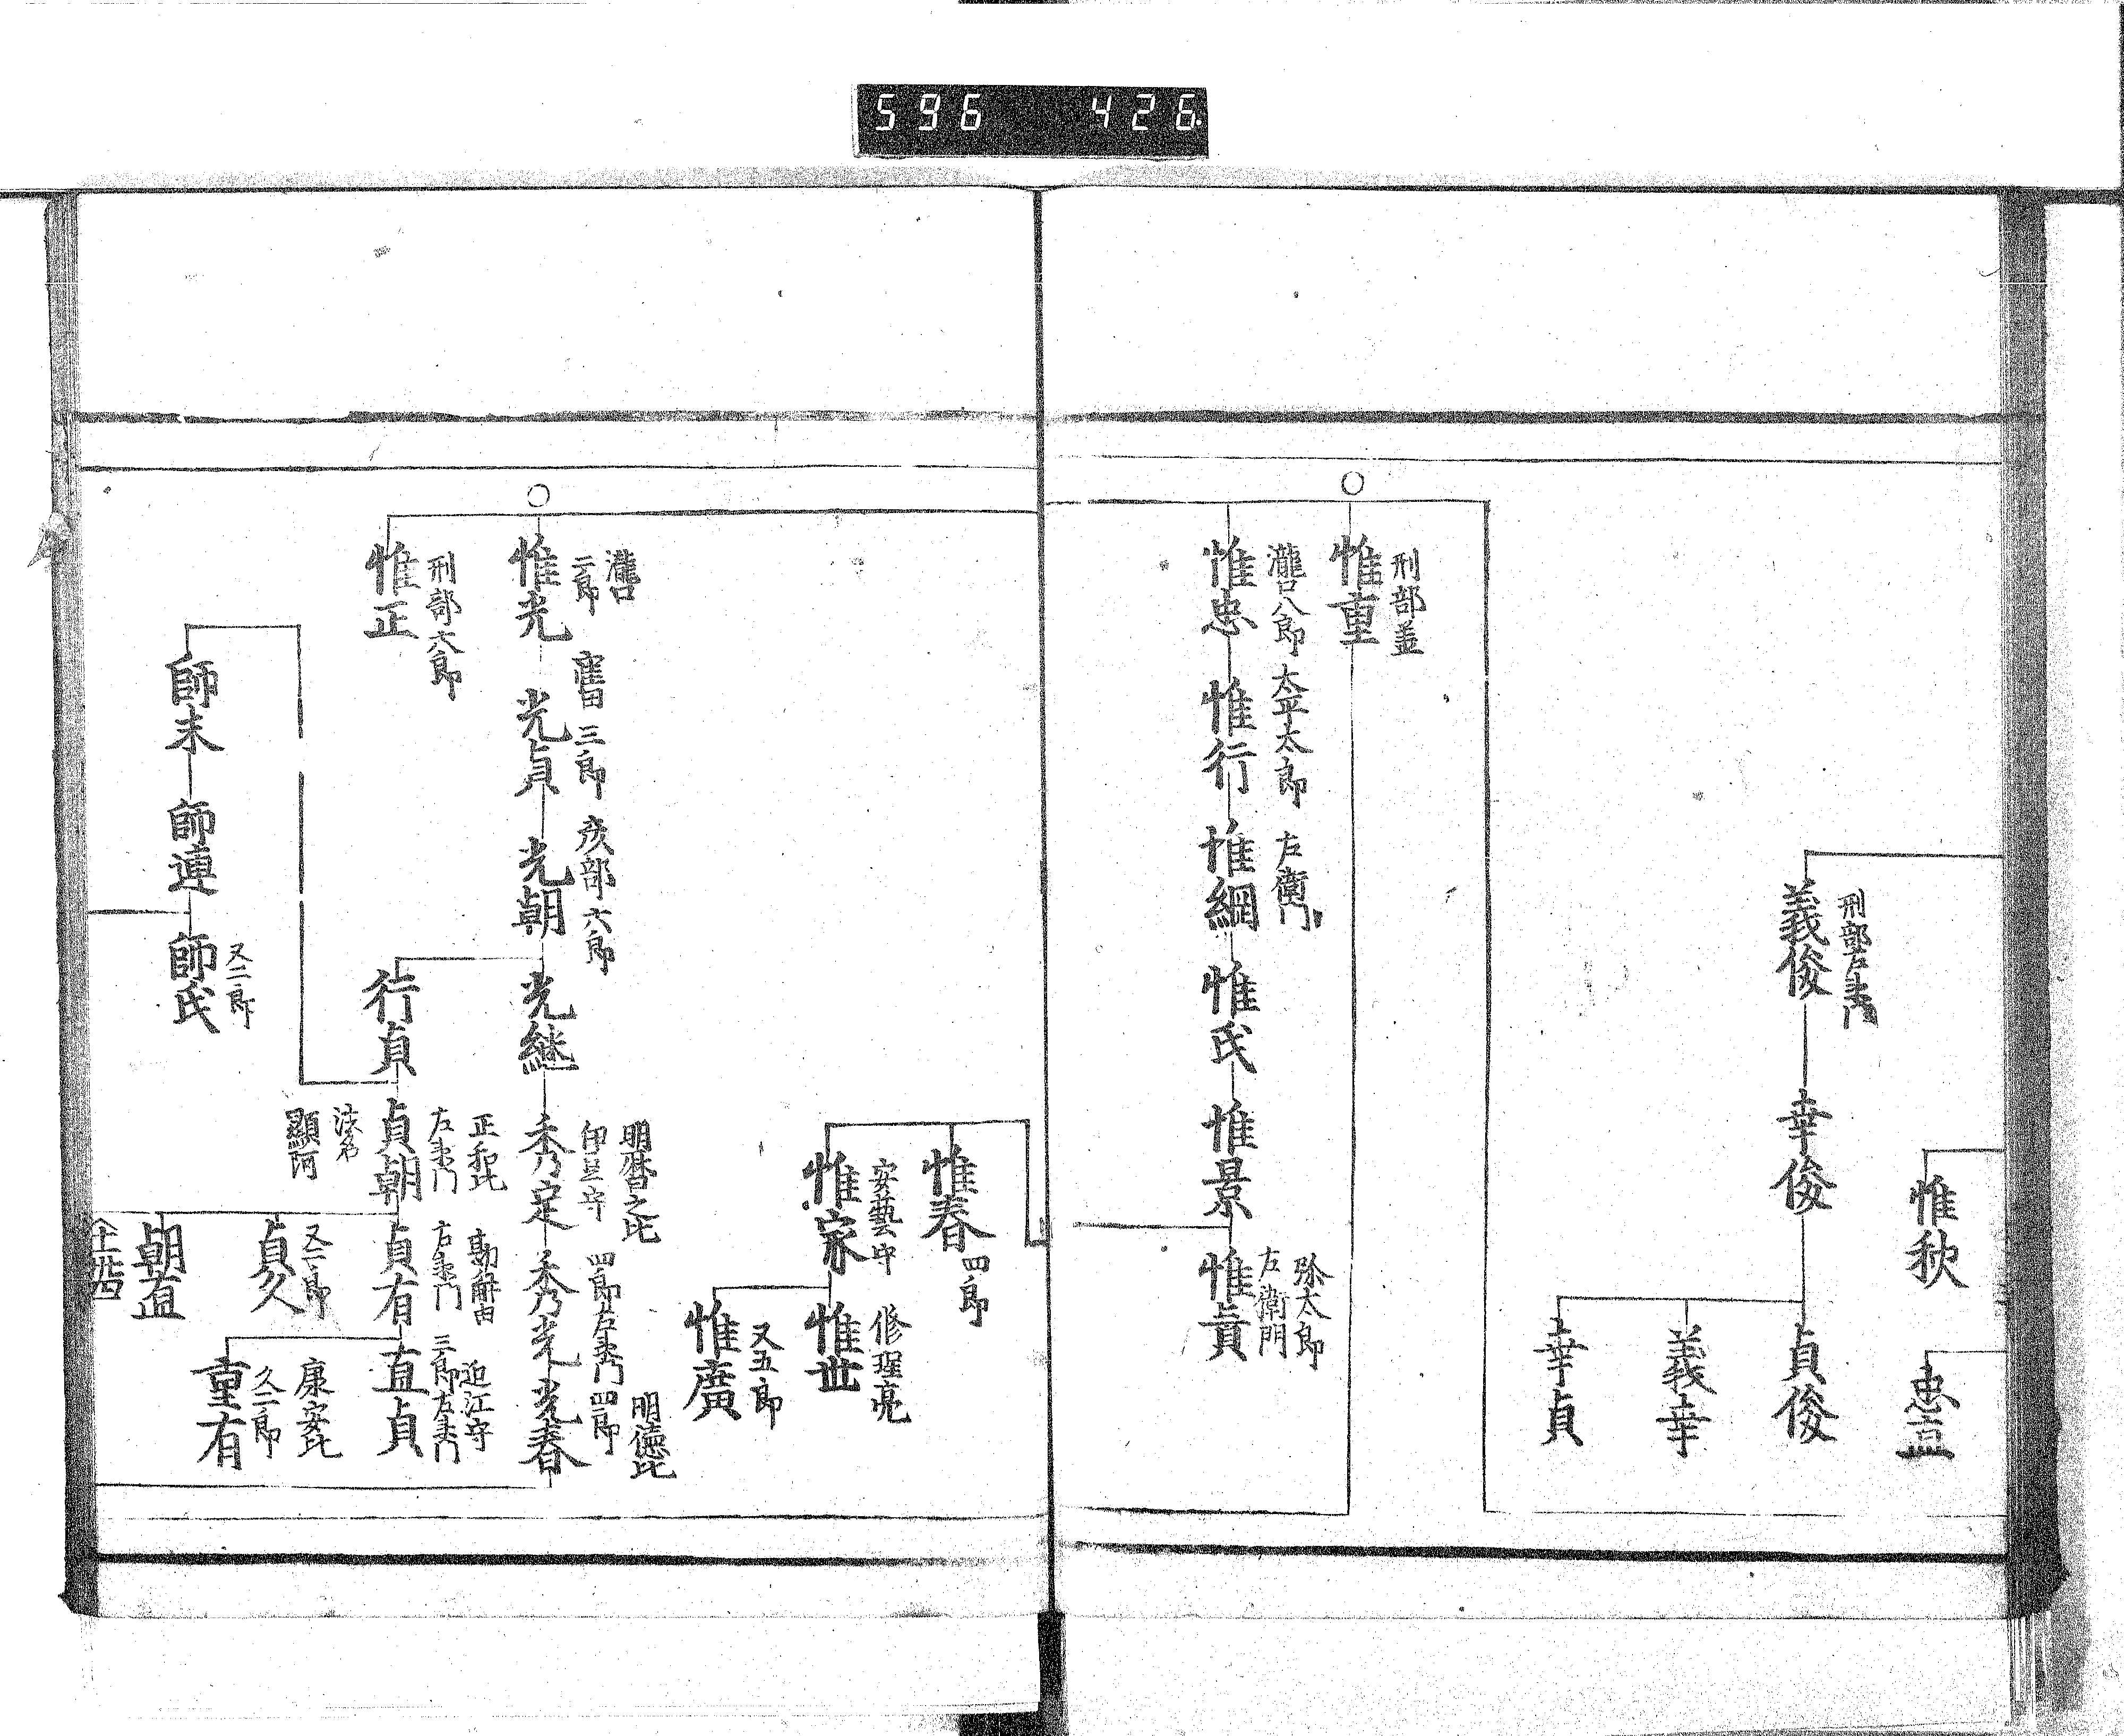 596 426
刑部左衛門
義俊
幸俊
貞俊
義幸
幸貞
惟秋
忠益
刑部丞
惟重
瀧口八郎
惟忠
太平太郎
惟行
左衛門
惟綱
惟氏
惟景
弥太郎
左衛門
惟貞
惟春
四郎
安藝守
惟家
修理亮
惟世
又五郎
惟廣
瀧口
二郎
惟光
三郎
光貞
六郎
光朝
光継
明暦之比
秀定
四郎左衛門
秀光
明徳比
四郎
光春
刑部六郎
惟正
行貞
正和比
左衛門
貞朝
法名
顯阿
勘解由
右衛門
貞有
近江守
三郎左衛門
直貞
又二郎
貞久
康安比
久二郎
重有
朝直
師末
師連
又二郎
師氏